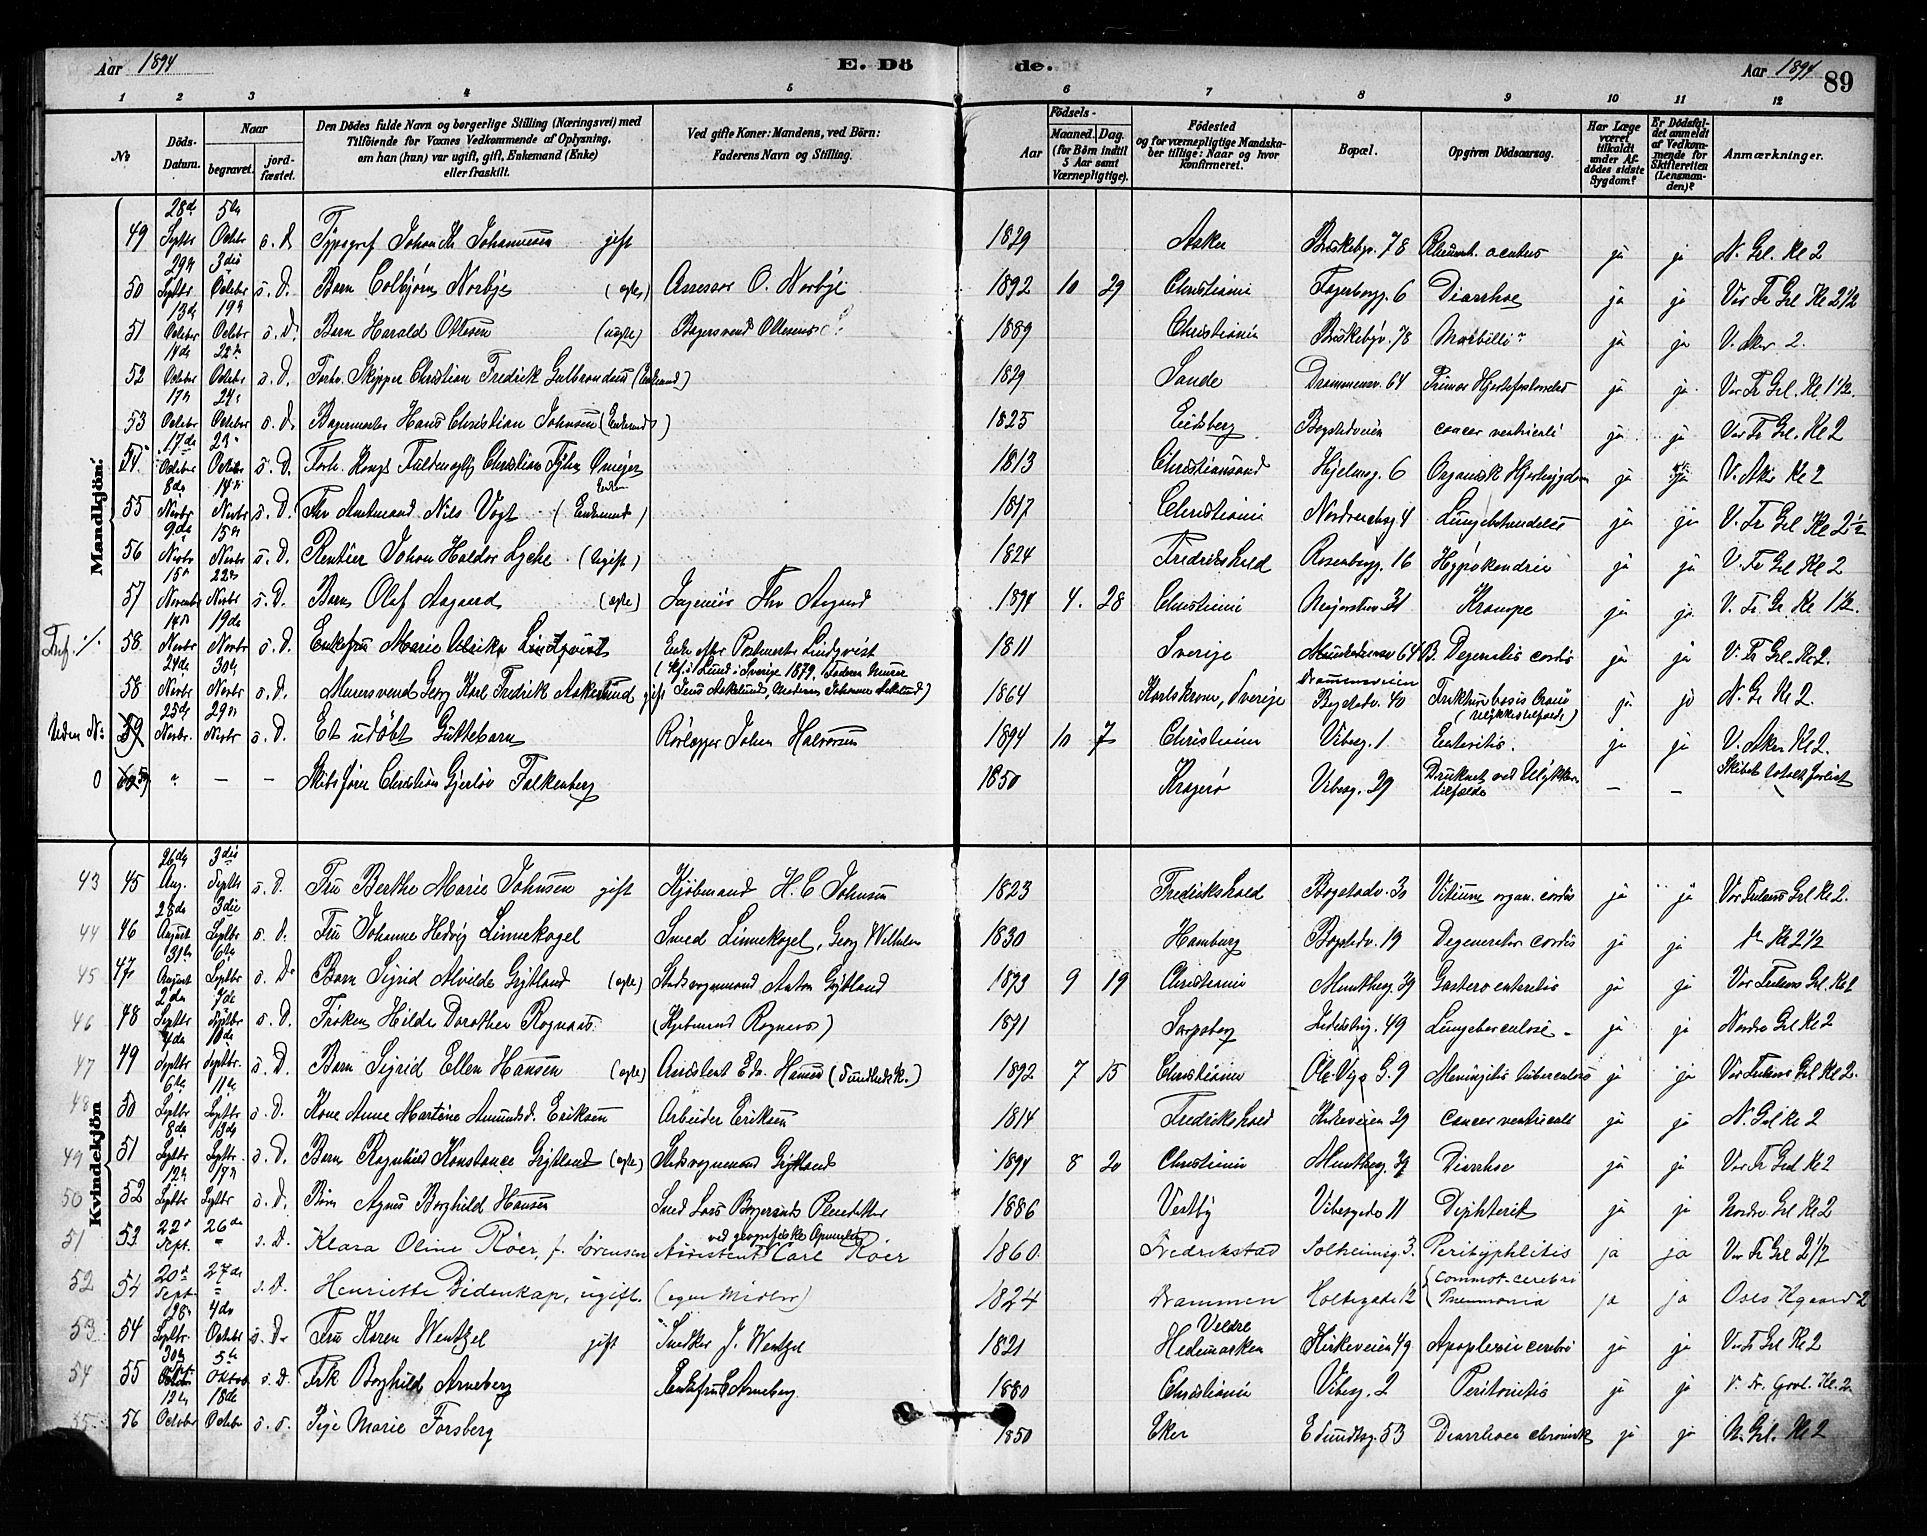 Aar 1894
E. Dö
de.
Aar 1894
89
1 2 3 4 5 6 7 8 9 10 11 12
No
Döds-Datum.
Naar
begravet.
jord-fæstet.
Den Dödes fulde Navn og borgerlige Stilling (Næringsvei) med
Tilföiende for Voxnes Vedkommende af Oplysning,
om han (hun) var ugift, gift, Enkemand (Enke)
eller fraskilt.
Ved gifte Koner: Mandens, ved Börn:
Faderens Navn og Stilling.
Födsels-
Aar
Maaned. Dag.
(for Börn indtil
5 Aar samt
Værnepligtige).
Födested
og for værnepligtige Mandska-
ber tillige: Naar og hvor
konfirmeret.
Bopæl.
Opgiven Dödsaarsag.
Har Læge
været
tilkaldt
under Af-
dödes sidste
Sygdom?
Er Dödsfal-
det anmeldt
af Vedkom-
mende for
Skifteretten
(Lensman-
den)?
Anmærkninger.
Mandkjön.
49 28d Septbr 5te Octobr s. D. Typograf Johan Johannesen gift 1829 Asker Briskebyv. 78 Rheumat. acutus ja ja N. Grl. Kl 2
50 29n Septbr 3die October s. D. Barn Colbjörn Norbye (egte) Assessor O. Norbye 1892 10 29 Christiania Fagerborgg. 6 Diarrhoe ja ja Vor Fr Grl Kl 2 1/2
51 13de October 19n Octobr s. D. Barn Harald Ottesen (uegte) Bagersvend Ottesen 1889 Christiania Briskebyv. 78 Morbilli ja ja V. Aker 2.
52 14de October 22n October s. D. Forhv. Skipper Christian Fredrik Gulbrandsen (Enkemand) 1829 Sande Drammensv. 64 ja ja Vor Fr Grl. Kl 1 1/2.
53 17n October 24n October s. D. Bagermester Hans Christian Johnsen (Enkemand) 1825 Eidsberg Bogstadveien cancer ventriculi ja ja Vor Fr Grl. Kl 2
54 17de October 23n October s. D. Forh. Kongs Fuldmægtig Christian 1813 Christiansand Hjelmsg. 6 Organisk Hjertesygdom ja ja V. Aker Kl 2
55 8de Novbr 14n Novbr s. D. Fhv Amtmand Nils Vogt (Enkemand) 1817 Christiania Nordraaksg 4 Lungebetændelse ja ja V. Fr Grl Kl 2 1/2
56 9de Novbr 15n Novbr s. D. Rentier Johan Haldor Lyche (Ugift) 1824 Fredrikshald Rosenborgg. 16 Hypokondri ja ja V. Fr Grl Kl 2
57 15n November 22n Novbr s. D. Barn Olaf Aagaard (egte) Ingeniör Thv Aagaard 1894 4. 28 Christiania Majorstuv. 31 Krampe ja ja V. Fr. Gr. Kl 1 1/2.
58 14n Novbr 19de Novbr s. D. Enkefru Marie Ulrika Lindqvist Enke efter Postmester Lindqvist 1811 Sverige 64 B. Degeneratio cordis ja ja V. Fr Grl. Kl 2.
58 24de Novbr 30te Novbr s. D. Murersvend Georg Karl Fredrik Askelund gift (Kfs i Lund i Sverige 1879, Faderen Murer Jens Askelund, Moderen Johanne Askelund) 1864 Karlskrona, Sverige Drammensveien Bogstadv. 40 Fraktura basis cranii (Ulykkestilfælde) ja ja N. Gr Kl 2.
Uden No 59 25de Novbr. 29n Novbr s. D. Et udöbt Guttebarn Rörlegger Johan Halvorsen 1894 10 7 Christiania Vibesg. 1 Enteritis. ja ja V. Aker Kl 2.
0 59 " — — Skibsförer Christian Gjerlöv Falkenberg 1850 Kragerö Vibesg. 29 Druknet ved Ulykkes-tilfælde — — Skibet totalt forlist
Kvindekjön
43 45 26de Aug. 3die Septbr s. D. Fru Berthe Marie Johnsen gift Kjöbmand H. C Johnsen 1823 Fredrikshald Bogstadv. 30 Vitium organ. cordis ja ja Vor Frelsers Grl Kl 2.
44 46 28de August 3die Septbr s. D. Fru Johanne Hedvig Linnekogel Smed Linnekogel, Georg Wilhelm 1830 Hamburg Bogstadv. 19 Degeneratio cordis ja ja Kl 2 1/2
45 47 31te August 6te Septbr s. D. Barn Sigrid Alvilde Gjytland (egte) Anton Gjytland 1893 9 19 Christiania Munthesg. 39 Gastero enteritis ja ja Vor Frelsers Grl. Kl 2
46 48 2den Septbr 7de Septbr s. D. Fröken Hilda Dorothea Rognaas (Kjöbmand Rognaas) 1871 Sarpsborg 49 Lungetuberculose ja ja Nordre Grl Kl 2
47 49 4de Septbr 10de Septbr. s. D. Barn Sigrid Ellen Hansen (egte) Assistent Edv. Hansen (Sundhedsk.) 1892 7 15 Christiania Ole Vigs G. 9 Meningitis tuberculosa ja ja Vor Frelsers Grl Kl 2.
48 50 6te Septbr 11te Septbr s. D. Kone Anne Martine Amundsd. Eriksen Arbeider Eriksen 1814 Fredrikshald Kirkeveien 29 Cancer ventriculi ja ja N. Grl Kl 2
49 51 8de Septbr 13de Septbr. s. D. Barn Ragnhild Konstance Gjytland (egte) Gjytland 1894 8 20 Christiania Munthesg. 39 Diarrhoe ja ja Vor Fr Grl Kl 2
50 52 12te Septbr 17n Septbr s. D. Barn Agnes Borghild Hansen 1886 Vestby Vibesgade 11 Diphterit ja ja Nordre Grl Kl 2
51 53 22de Sept. 26de " s. D. Klara Oline Röer, f. Sörensen Assistent ved geografiske Opmaaling Carl Röer 1860 Fredrikstad Solheimsg. 3. Perityphlitis ja ja Vor Fr Grl 2 1/2
52 54 20de Sept. 27de " s. D. Henriette Bidenkap, ugift. (egne Midler) 1824 Drammen Holtegade 12 Commot. cerebri Pneumonia ja ja Oslo Kgaard 2
53 54 28n Septbr. 4de October s. D. Fru Karen Wentzel gift Snedker J. Wentzel 1821 Veldre Hedemarken Kirkeveien 49 Apoplexia cerebri ja ja Vor Fr Grl Kl 2
54 55 30te Sept 5te Oktob s. D. Frk Borghild Arneberg Enkefru E Arneberg. 1880 Christiania Vibesg. 2 Peritonitis ja ja V. Fr. Gravl. Kl. 2
55 56 12te October 18de October s. D. Pige Marie Forsberg 1850 Eker Eilundtsg. 53 Diarrhoea chronisk ja ja N. Grl. Kl 2